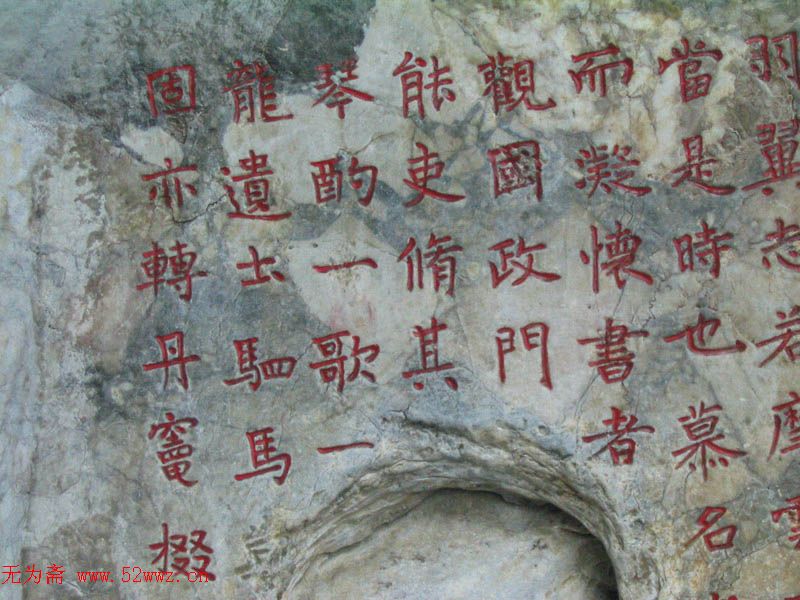 羽翼志若摩雲
當是時也慕名
而凝懷書者
觀國政門
能吏脩其
琴酌一歌一
龍遺士駟馬
固亦轉丹竈掇
无为斋 www.52wwz.cn